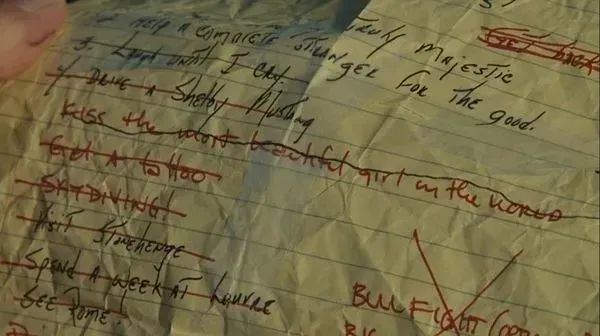 2. HELP A COMPLETE STRANGER FOR THE GOOD.
TRULY MAJESTIC
3. LAUGH UNTIL I CRY
4) DRIVE A Shelby Mustang
Kiss the most beautiful girl in the world
Get A tattoo
SKYDIVING!
Visit Stonehenge
SPEND A WEEK AT LOUVRE
SEE ROME.
BULL FIGHT